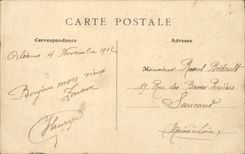 CARTE POSTALE
Correspondance
Adresse
Orléans 4 Novembre 1912
Bonjour mon vieux
Zouave
Henry
Monsieur Raoul Bidault
19 Rue des Basses Perrières
Saumur
(Maine & Loire)